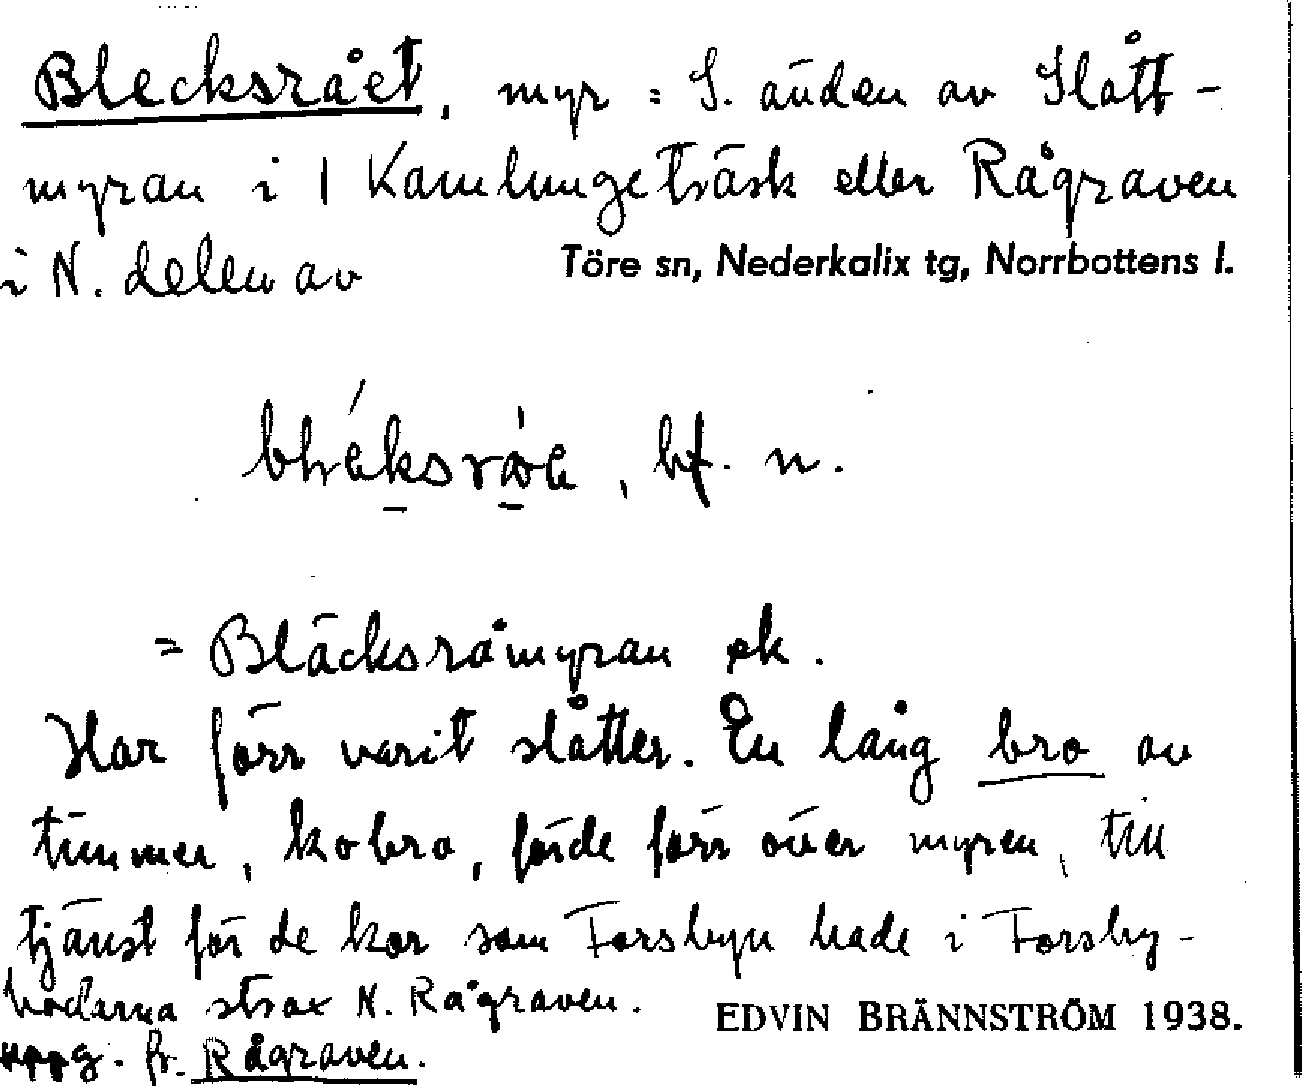 Blecksrået, myr = S. änden av Slått-
myran i | Kamlungeträsk eller Rågraven
i N. delen av Töre sn, Nederkalix tg, Norrbottens l.
bf. n.
= Bläcksråmyran ek.
Har förr varit slåtter. En lång bro av
timmer, kobro, förde förr över myren, till
tjänst för de kor som Forsbyn hade i Forsby-
bodarna strax N. Rågraven.
EDVIN BRÄNNSTRÖM 1938.
uppg. fr. Rågraven.